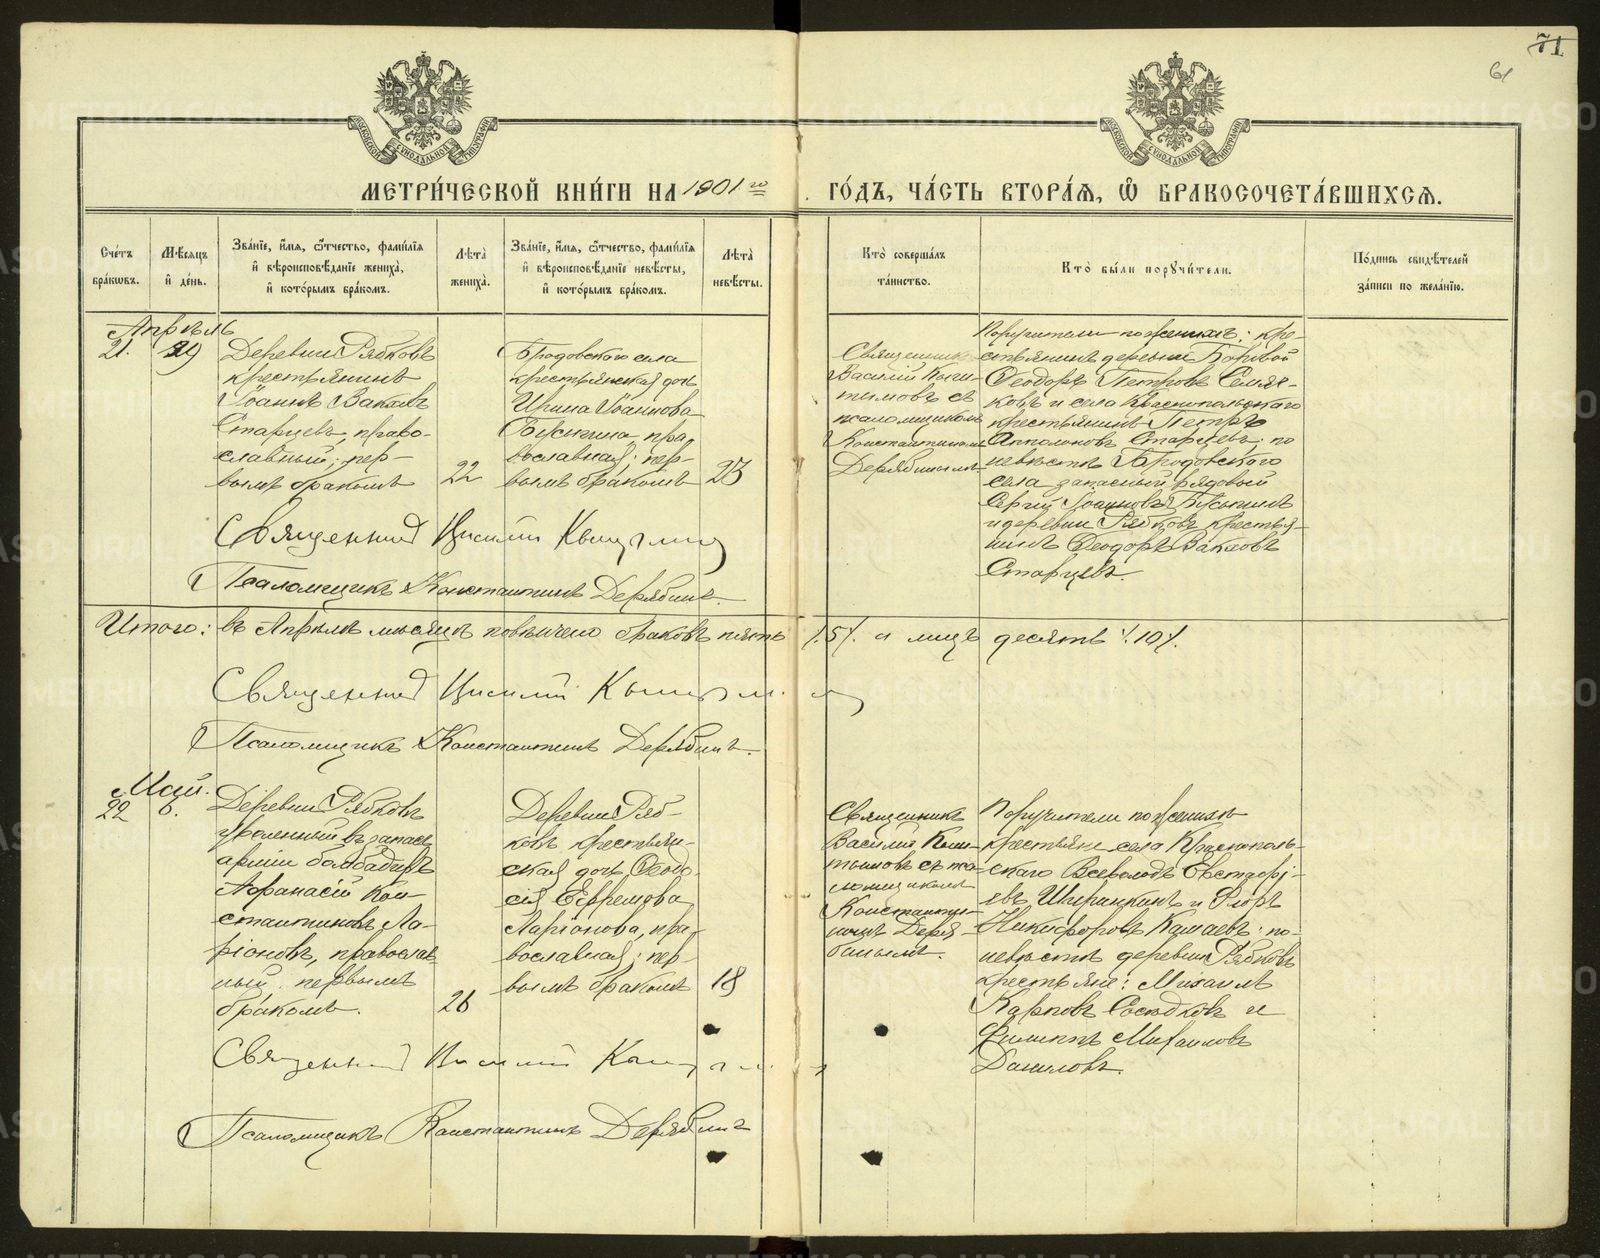 71
61
МОСКОВСКОЙ СѴНОДАЛЬНОЙ ТИПОГРАФІИ
МОСКОВСКОЙ СѴНОДАЛЬНОЙ ТИПОГРАФІИ
МЕТРИ́ЧЕСКОЙ КНИ́ГИ НА 1901 го ГО́ДЪ, ЧА́СТЬ ВТОРА́Я, Ѽ БРАКОСОЧЕТА́ВШИХСѦ.
Сче́тъ бра́кѡвъ.
Мѣ́сяцъ и҆ де́нь.
Зва́нїе, и҆́мя, ѻ҆́тчество, фами́лїя
и҆ вѣроисповѣ́данїе жениха̀,
и҆ кото́рымъ бра́комъ.
Лѣ́та жениха̀.
Зва́нїе, и҆́мя, ѻ҆́тчество, фами́лїя
и҆ вѣроисповѣ́данїе невѣ́сты,
и҆ кото́рымъ бра́комъ.
Лѣ́та невѣ́сты.
Кто̀ соверша́лъ
та́инство.
Кто̀ бы́ли порꙋчи́тели.
По́дпись свидѣ́телей
за́писи по жела́нїю.
Апрѣль
21. 29
Деревни Рябковъ
крестьянинъ
Іоаннъ Ваковъ
Старцевъ, право-
славный; пер-
вымъ бракомъ
22
Бродовского села
крестьянская дочь
Ирина Іоаннова
Бусыгина, пра
вославная; пер-
вымъ бракомъ
23
Священникъ
Василій
съ
псаломщикомъ
Константиномъ
Дерябинымъ
Поручители по женихѣ: кре-
стьянинъ деревни Боровой
Ѳеодоръ Петровъ
ковъ и села Краснопольскаго
крестьянинъ Петръ
Апполоновъ Старцевъ; по
невѣстѣ Бродовского
села запасный рядовой
Сергій Іоанновъ Бусыгинъ
и деревни Рябковъ крестья-
нинъ Ѳеодоръ Ваковъ
Старцевъ.
Священникъ Василій
Псаломщикъ Константинъ Дерябинъ.
Итого: въ Апрѣлѣ мѣсяцѣ повѣнчено браковъ пять /.5/. а лицъ десять /.10/.
Священникъ Василій
Псаломщикъ Константинъ Дерябинъ.
Май.
22 6.
Деревни Рябковъ
уволенный въ запасъ
арміи бомбадиръ
Афанасій Кон-
стантиновъ Ла-
ріоновъ, православ
ный. первымъ
бракомъ.
26
Деревни Ряб-
ковъ крестьян-
ская дочь Ѳеодо-
сія Ефремова
Ларіонова, пра-
вославная; пер-
вымъ бракомъ
18
Священникъ
Василій
съ пса-
ломщикомъ
Константи-
номъ Деря-
бинымъ.
Поручители по женихѣ
крестьяне села Краснополь-
скаго Всеволодъ
евъ и Флоръ
Никифоровъ Камаевъ; по-
невѣстѣ деревни Рябковъ
крестьяне: Михаилъ
Карповъ Сосѣдковъ и
Филиппъ Михаиловъ
Даниловъ.
Священникъ Василій
Псаломщикъ Константинъ Дерябинъ
METRIKI.GASO-URAL.RU